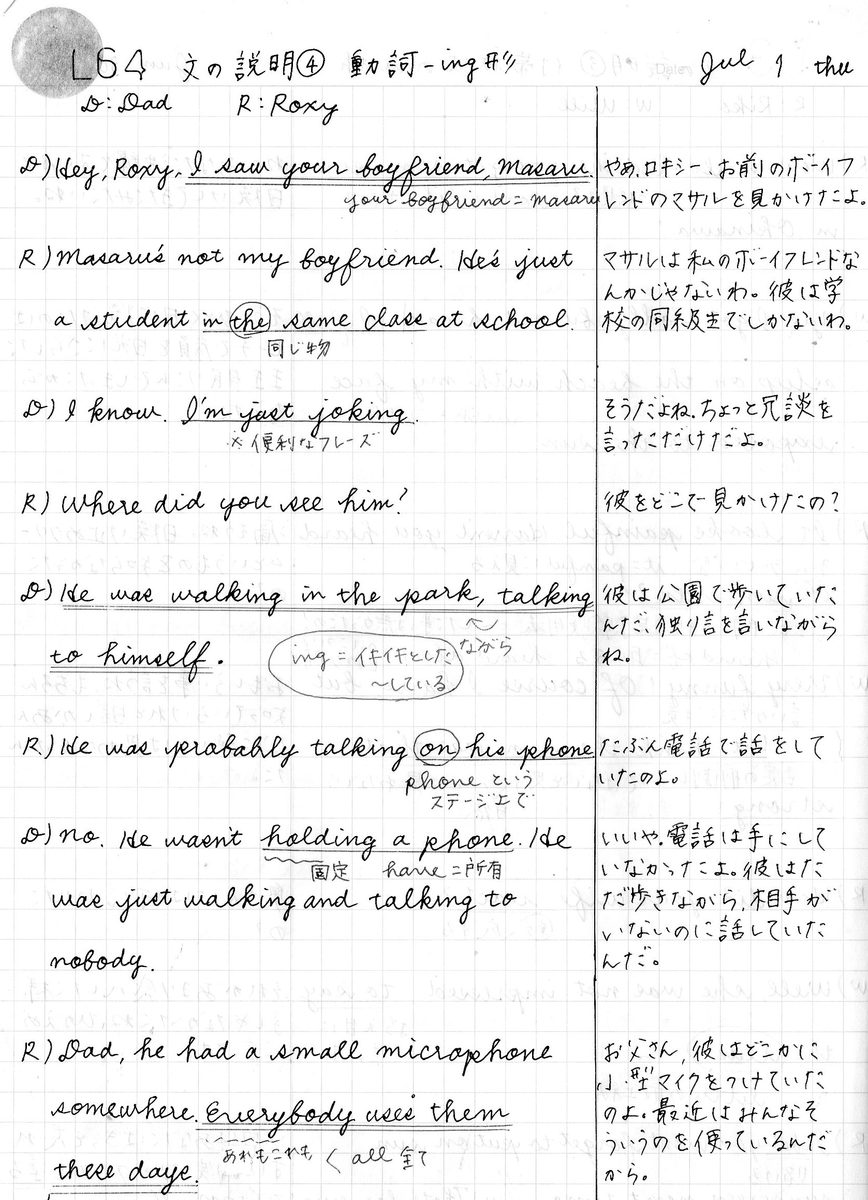 L64 文の説明④ 動詞-ing形 Jul 1 thu
D:Dad R:Roxy
D) Hey, Roxy, I saw your boyfriend, Masaru.
your boyfriend = masaru
やあ、ロキシー、お前のボーイフ
レンドのマサルを見かけたよ。
R) Masaru's not my boyfriend. He's just
a student in the same class at school.
同じ物
マサルは私のボーイフレンドな
んかじゃないわ。彼は学
校の同級生でしかないわ。
D) I know. I'm just joking.
※便利なフレーズ
そうだよね、ちょっと冗談を
言っただけだよ。
R) Where did you see him?
彼をどこで見かけたの?
D) He was walking in the park, talking
to himself.
ながら
ing = イキイキとした
〜している
彼は公園で歩いていた
んだ、独り言を言いながら
ね。
R) He was probably talking on his phone
phone という
ステージ上で
たぶん電話で話をして
いたのよ。
D) no. He wasn't holding a phone. He
固定 have = 所有
was just walking and talking to
nobody.
いいや。電話は手にして
いなかったよ。彼はた
だ歩きながら、相手が
いないのに話していた
んだ。
R) Dad, he had a small microphone
somewhere. Everybody uses them
あれもこれも < all 全て
these days.
お父さん、彼はどこかに
小型マイクをつけていた
のよ。最近はみんなそ
ういうのを使っているんだ
から。